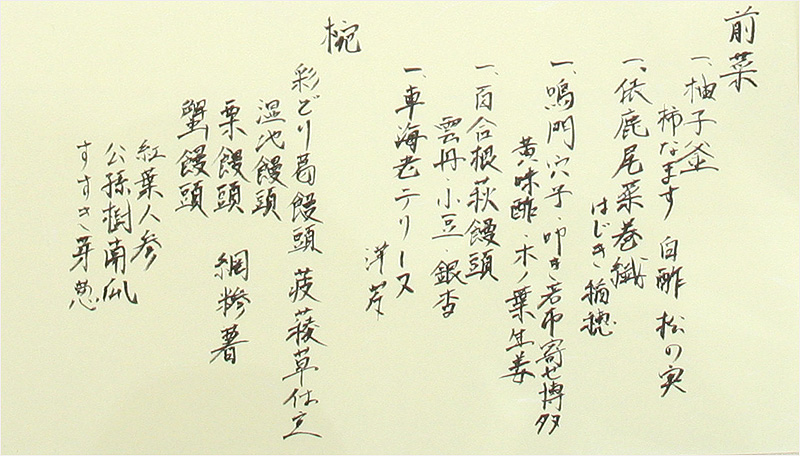 前菜
一、柚子釜
柿なます 白酢 松の実
一、依鹿尾菜巻繊
はじき稲穂
一、鳴門穴子・叩き若布寄せ博多
黄味酢・木ノ葉生姜
一、百合根萩饅頭
雲丹 小豆 銀杏
一、車海老テリーヌ
洋芹
椀
彩どり葛饅頭 菠薐草仕立
湿地饅頭
栗饅頭 網糝薯
蟹饅頭
紅葉人参
公孫樹南瓜
すすき 芽葱